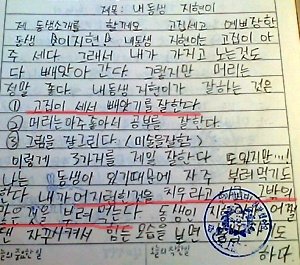 제목: 내 동생 지현이
제 동생소개를 할께요 고집세고 예쁘장한
동생 이지현 내동생 지현이는 고집이 아
주 세다. 그래서 내가 가지고 노는것도
다 빼앗아 간다. 그렇지만 머리는
정말 좋다. 내동생 지현이가 잘하는 것은
① 고집이 세서 빼앗기를 잘한다
② 머리는아주좋아서 공부를 잘 한다.
③ 그림을 잘그린다 (미술을잘함)
이렇게 3가지를 제일 잘한다 도있지만…!
나는 동생이 있기때문에 자주 부려먹기도
한다. 내가어지럽힌것을 치우라고 하고 그밖의
많은것을 부려먹는다. 동생이 어쩔
땐 자꾸시켜서 힘든 모습을 보면
하다.